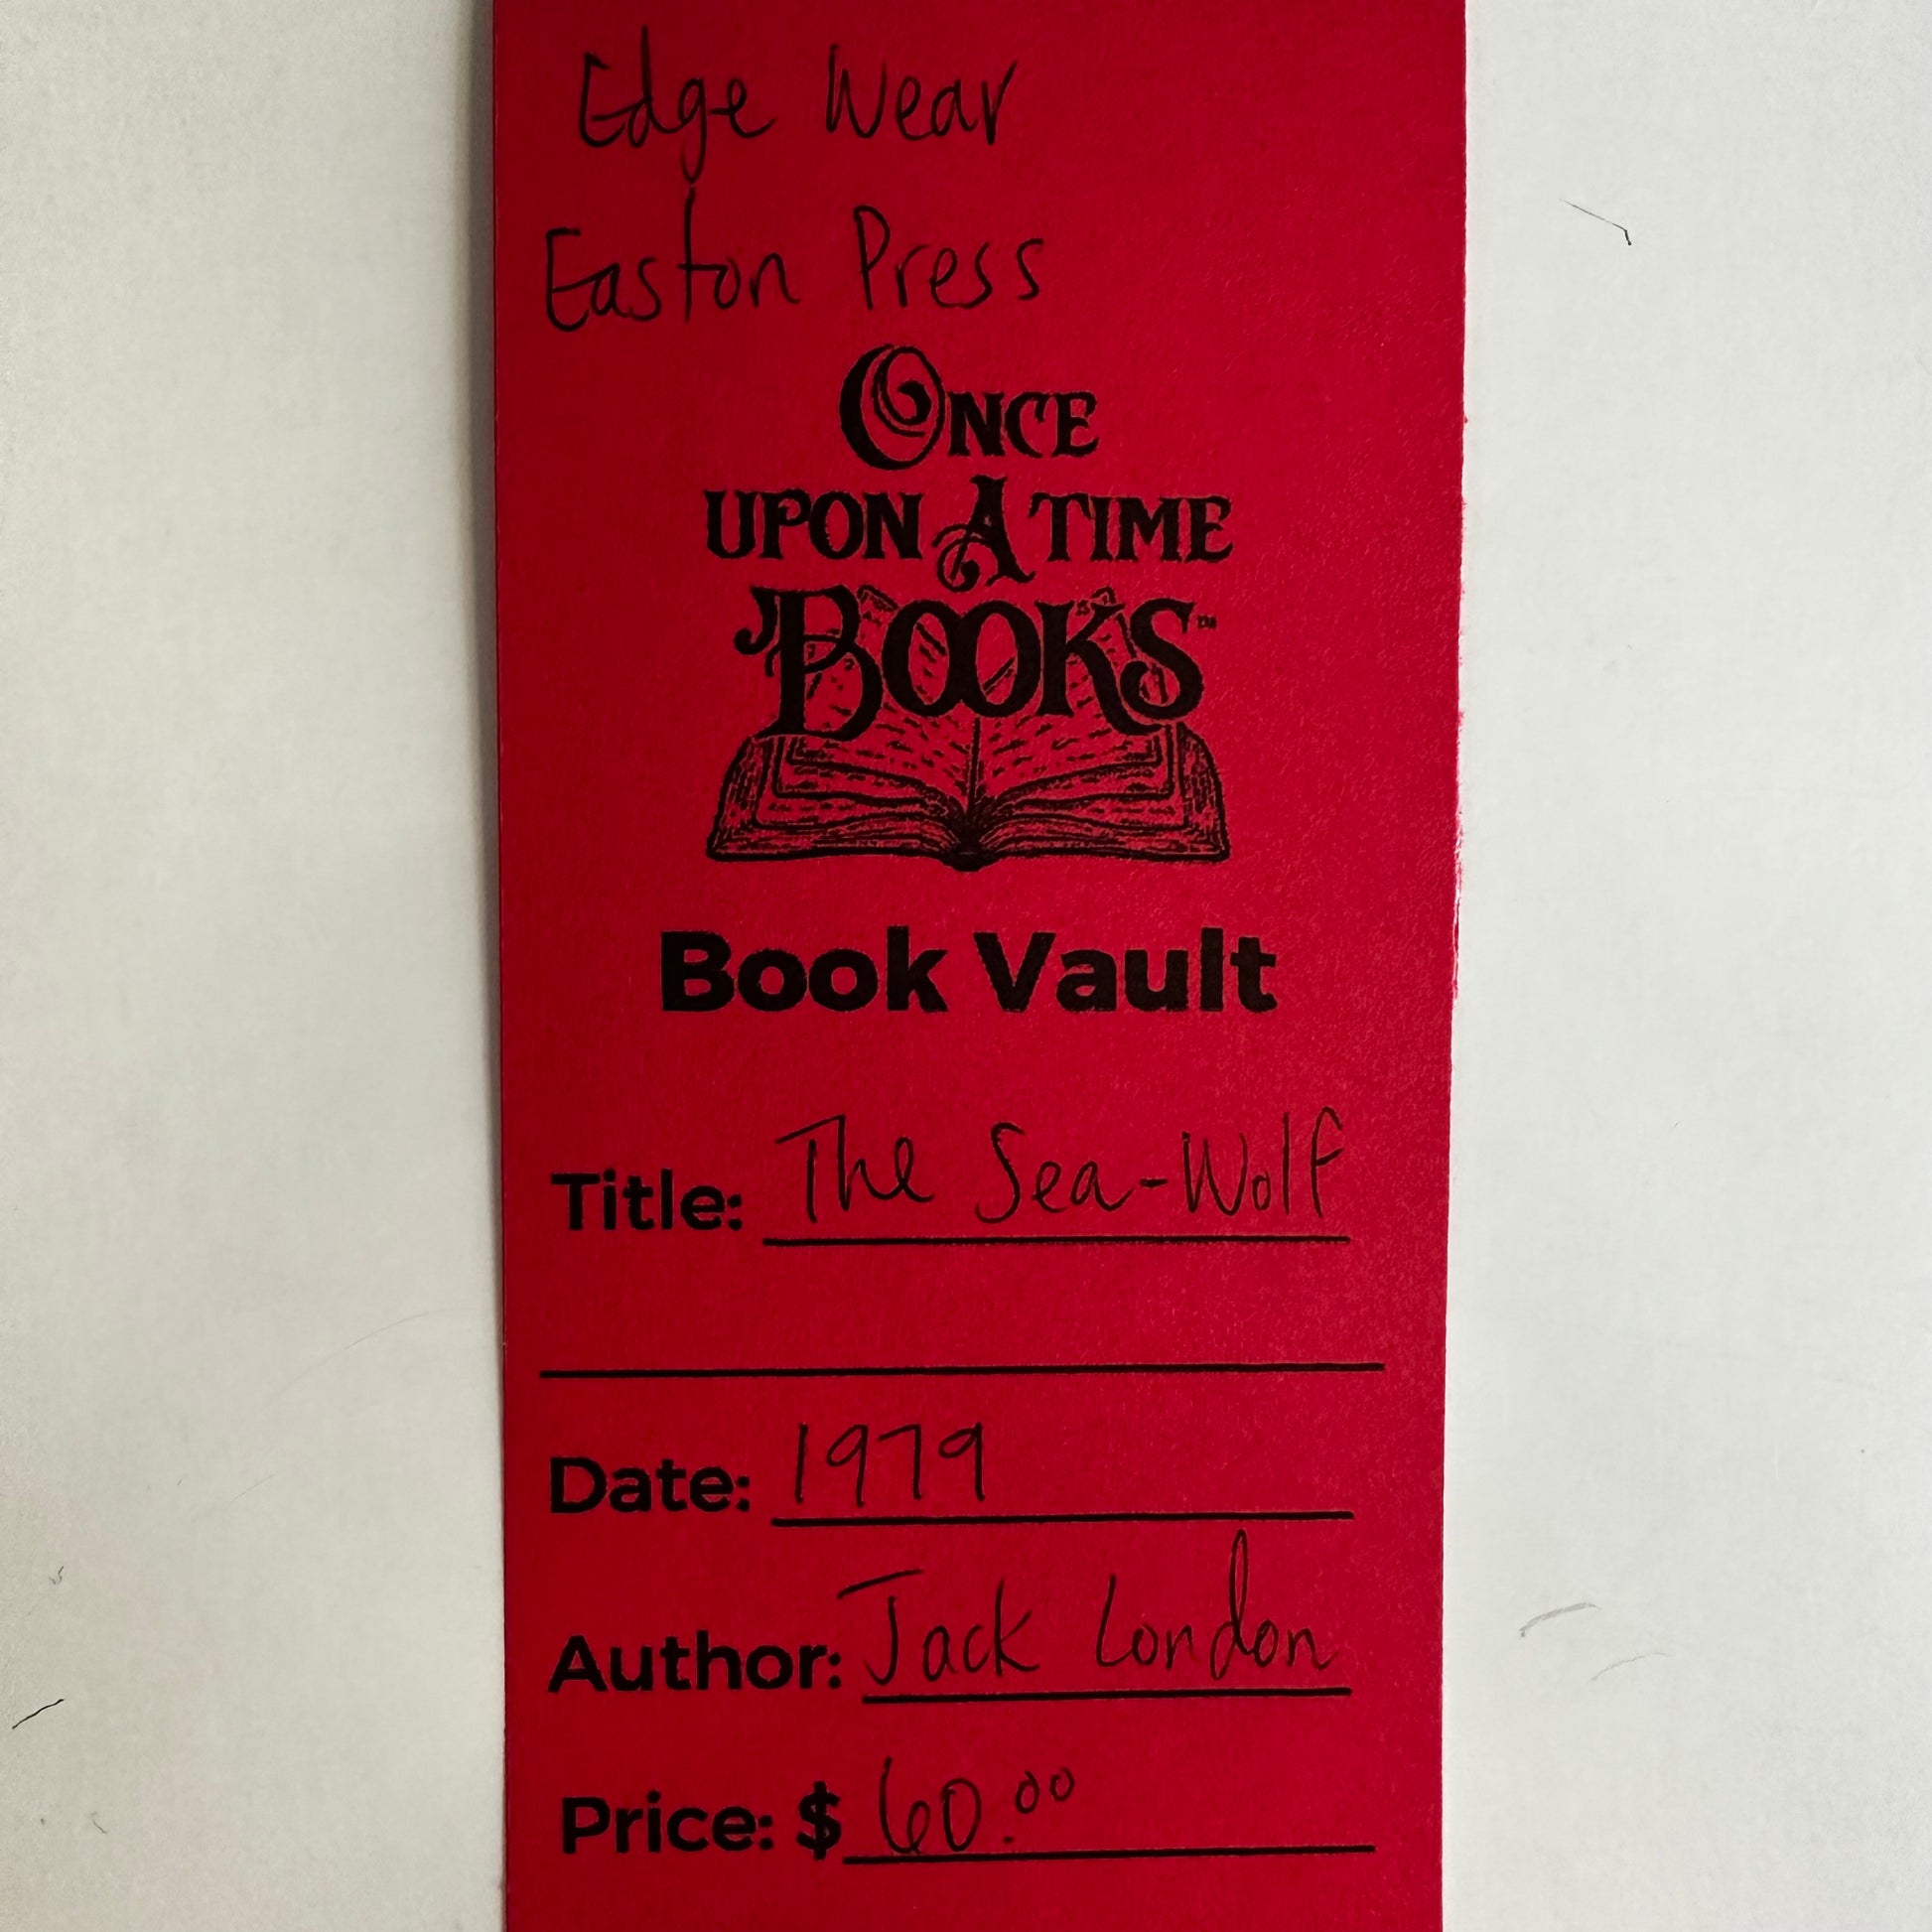 Edge Wear
Easton Press
ONCE
UPON A TIME
BOOKS™
Book Vault
Title: The Sea-Wolf
Date: 1979
Author: Jack London
Price: $ 60.00